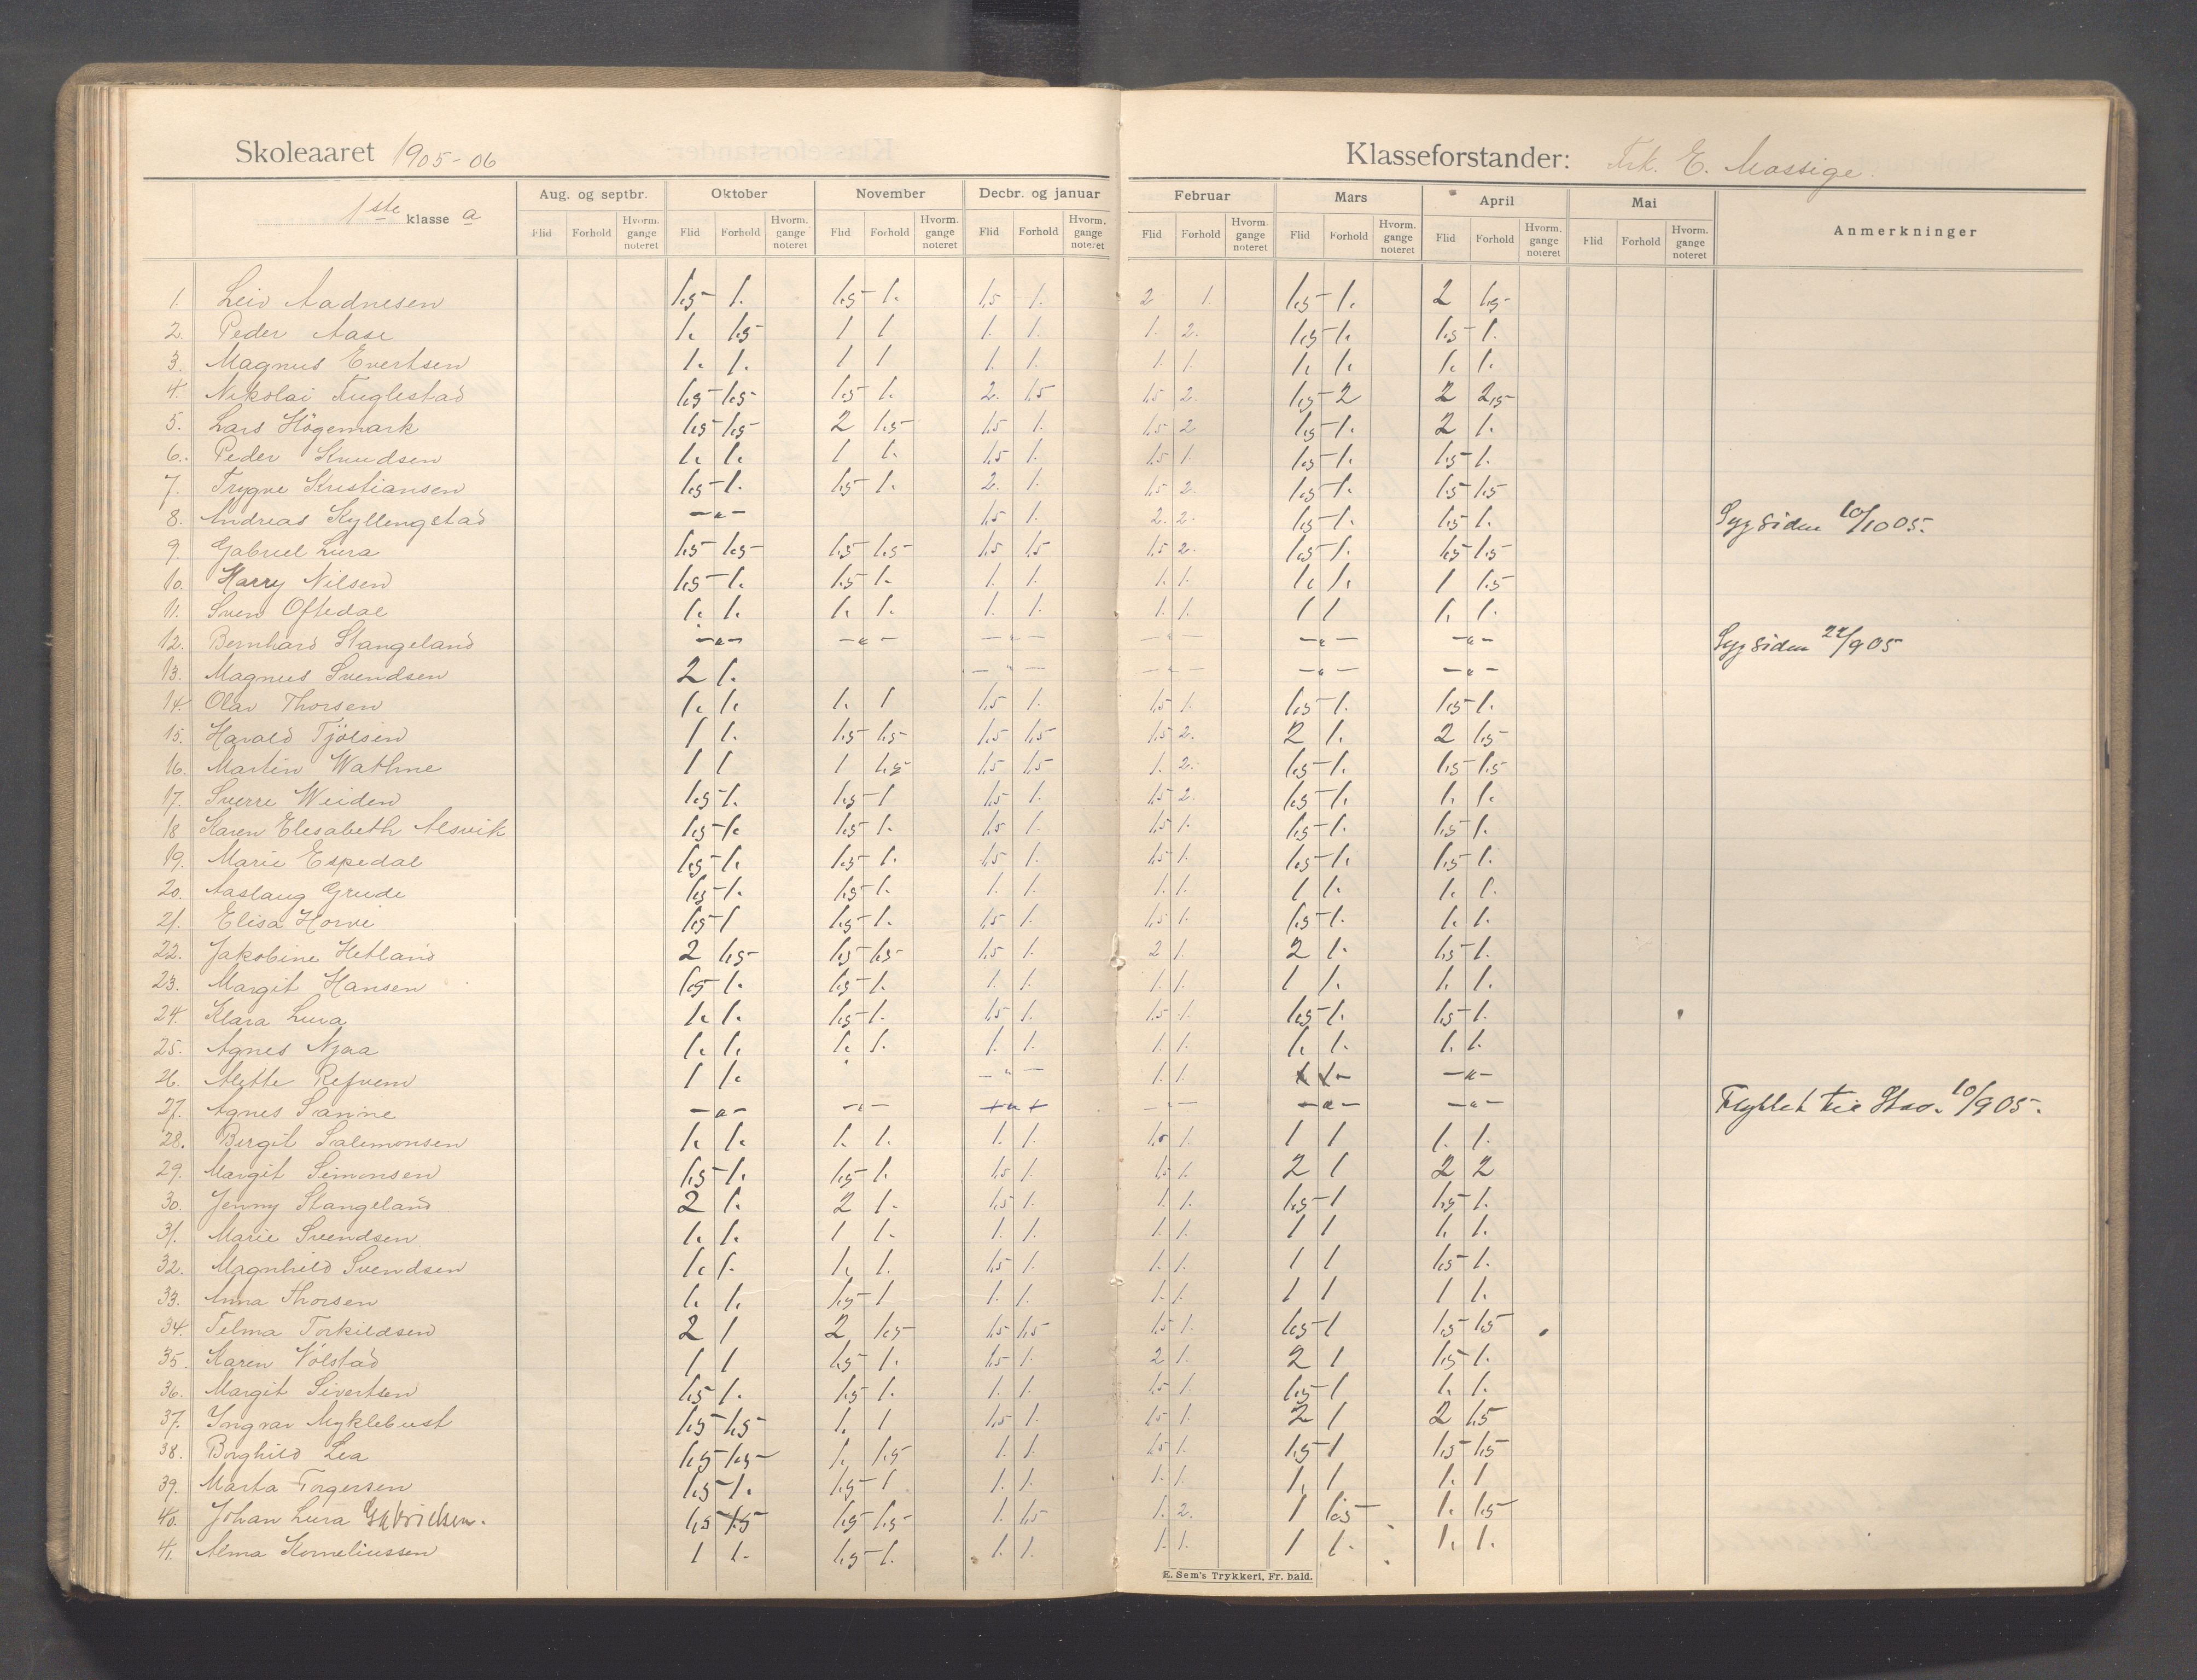 Skoleaaret 1905-06
Klasseforstander: Frk. E. Mossige.
1ste klasse a
Aug. og septbr. Oktober November Decbr. og januar Februar Mars April Mai Anmerkninger
Flid Forhold Hvorm. gange noteret Flid Forhold Hvorm. gange noteret Flid Forhold Hvorm. gange noteret Flid Forhold Hvorm. gange noteret Flid Forhold Hvorm. gange noteret Flid Forhold Hvorm. gange noteret Flid Forhold Hvorm. gange noteret Flid Forhold Hvorm. gange noteret
1. Leiv Aadnesen 1.5 1. 1.5 1. 1.5 1. 2 1. 1.5 1. 2 1.5
2. Peder Aase 1. 1.5 1 1 1. 1. 1. 2. 1.5 1. 1.5 1.
3. Magnus Evertsen 1. 1. 1 1 1. 1. 1. 1. 1. 1. 1. 1.
4. Nikolai Fuglestad 1.5 1.5 1.5 1. 2. 1.5 1.5 2. 1.5 2 2 2.5
5. Lars Högemark 1.5 1.5 2 1.5 1.5 1. 1.5 2 1.5 1. 2 1.
6. Peder Knudsen 1. 1. 1 1. 1.5 1. 1.5 1. 1.5 1. 1.5 1.
7. Trygve Kristiansen 1.5 1. 1.5 1. 2. 1. 1.5 2. 1.5 1. 1.5 1.5
8. Andreas Kyllingstad -"- 1.5 1. 2. 2. 1.5 1. 1.5 1. Syg siden 10/10 05.
9. Gabriel Lura 1.5 1.5 1.5 1.5 1.5 1.5 1.5 2. 1.5 1. 1.5 1.5
10. Harry Nilsen 1.5 1. 1.5 1. 1. 1. 1. 1. 1. 1. 1 1.5
11. Sven Oftedal 1. 1. 1. 1. 1. 1. 1. 1. 1 1 1. 1.
12. Bernhard Stangeland -"- -"- -"- -"- -"- -"- Syg siden 22/9 05
13. Magnus Svendsen 2 1. -"- -"- -"- -"-
14. Olav Thorsen 1. 1. 1. 1 1.5 1. 1.5 1. 1.5 1. 1.5 1.
15. Harald Tjölsen 1 1. 1.5 1.5 1.5 1.5 1.5 2. 2 1. 2 1.5
16. Martin Wathne 1 1 1 1.5 1.5 1.5 1. 2. 1.5 1. 1.5 1.5
17. Sverre Weiden 1.5 1. 1.5 1 1.5 1. 1.5 2. 1.5 1. 1. 1.
18 Karen Elisabeth Alsvik 1.5 1. 1.5 1. 1.5 1. 1.5 1. 1.5 1. 1.5 1.
19. Marie Espedal 1.5 1. 1.5 1. 1.5 1. 1.5 1. 1.5 1. 1.5 1.
20. Aaslaug Grude 1.5 1. 1.5 1. 1. 1. 1. 1. 1 1. 1. 1.
21. Elisa Horve 1.5 1 1.5 1. 1.5 1. 1.5 1. 1.5 1. 1. 1.
22. Jakobine Hetland 2 1.5 1.5 1.5 1.5 1. 2 1. 2 1. 1.5 1.
23. Margit Hansen 1.5 1. 1.5 1. 1. 1. 1. 1. 1 1. 1. 1.
24. Klara Lura 1. 1. 1.5 1. 1.5 1. 1.5 1. 1.5 1. 1.5 1.
25. Agnes Njaa 1. 1. 1. 1. 1. 1. 1. 1. 1. 1. 1. 1.
26. Alette Refvem 1 1. -"- 1. 1. -"-
27. Agnes Sanne -"- -"- -"- -"- -"- -"- Flyttet til Stav. 10/9 05.
28. Bergit Salemonsen 1. 1. 1. 1. 1. 1. 1.5 1. 1 1 1. 1.
29. Margit Simonsen 1.5 1. 1.5 1. 1.5 1. 1.5 1. 2 1 2 2
30. Jenny Stangeland 2 1. 2 1. 1.5 1. 1. 1. 1.5 1 1.5 1.
31. Marie Svendsen 1. 1. 1 1. 1. 1. 1. 1. 1 1 1. 1.
32. Magnhild Svendsen 1. 1. 1. 1. 1.5 1. 1. 1. 1 1 1.5 1.
33. Anna Thorsen 1. 1. 1.5 1 1. 1. 1. 1. 1 1 1 1.
34. Telma Torkildsen 2 1 2 1.5 1.5 1.5 1.5 1. 1.5 1 1.5 1.5
35. Karen Völstad 1 1 1.5 1. 1.5 1. 2 1. 2 1 1.5 1.
36. Margit Sivertsen 1.5 1. 1.5 1. 1. 1. 1.5 1. 1.5 1 1. 1.
37. Yngvar Myklebust 1.5 1.5 1. 1 1.5 1. 1.5 1. 2 1 2 1.5
38. Borghild Lea 1.5 1.5 1. 1.5 1. 1. 1.5 1. 1.5 1 1.5 1.5
39. Marta Torgersen 1.5 1. 1.5 1 1. 1. 1. 1. 1. 1 1. 1
40. Johan Lura Gabrielsen. 1.5 1.5 1.5 1.5 1. 1.5 1. 2. 1 1.5 1. 1.5
41. Alma Korneliussen 1 1. 1.5 1. 1. 1. 1. 1. 1 1. 1. 1.
E. Sem's Trykkeri, Fr. hald.